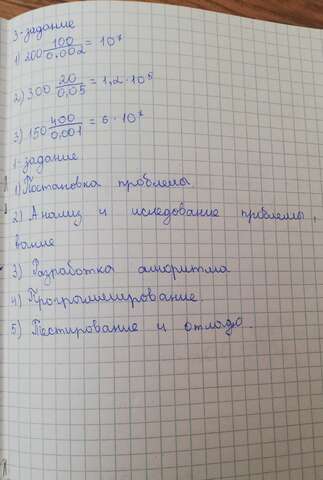 3-задание
1) 200 100/0.002 = 10⁷
2) 300 20/0.05 = 1,2 · 10⁵
3) 150 400/0.001 = 6 · 10⁷
1-задание
1) Постановка проблемы
2) Анализ и иследование приблемы,
вание
3) Разработка алгоритма
4) Программирование.
5) Тестирование и отладо.